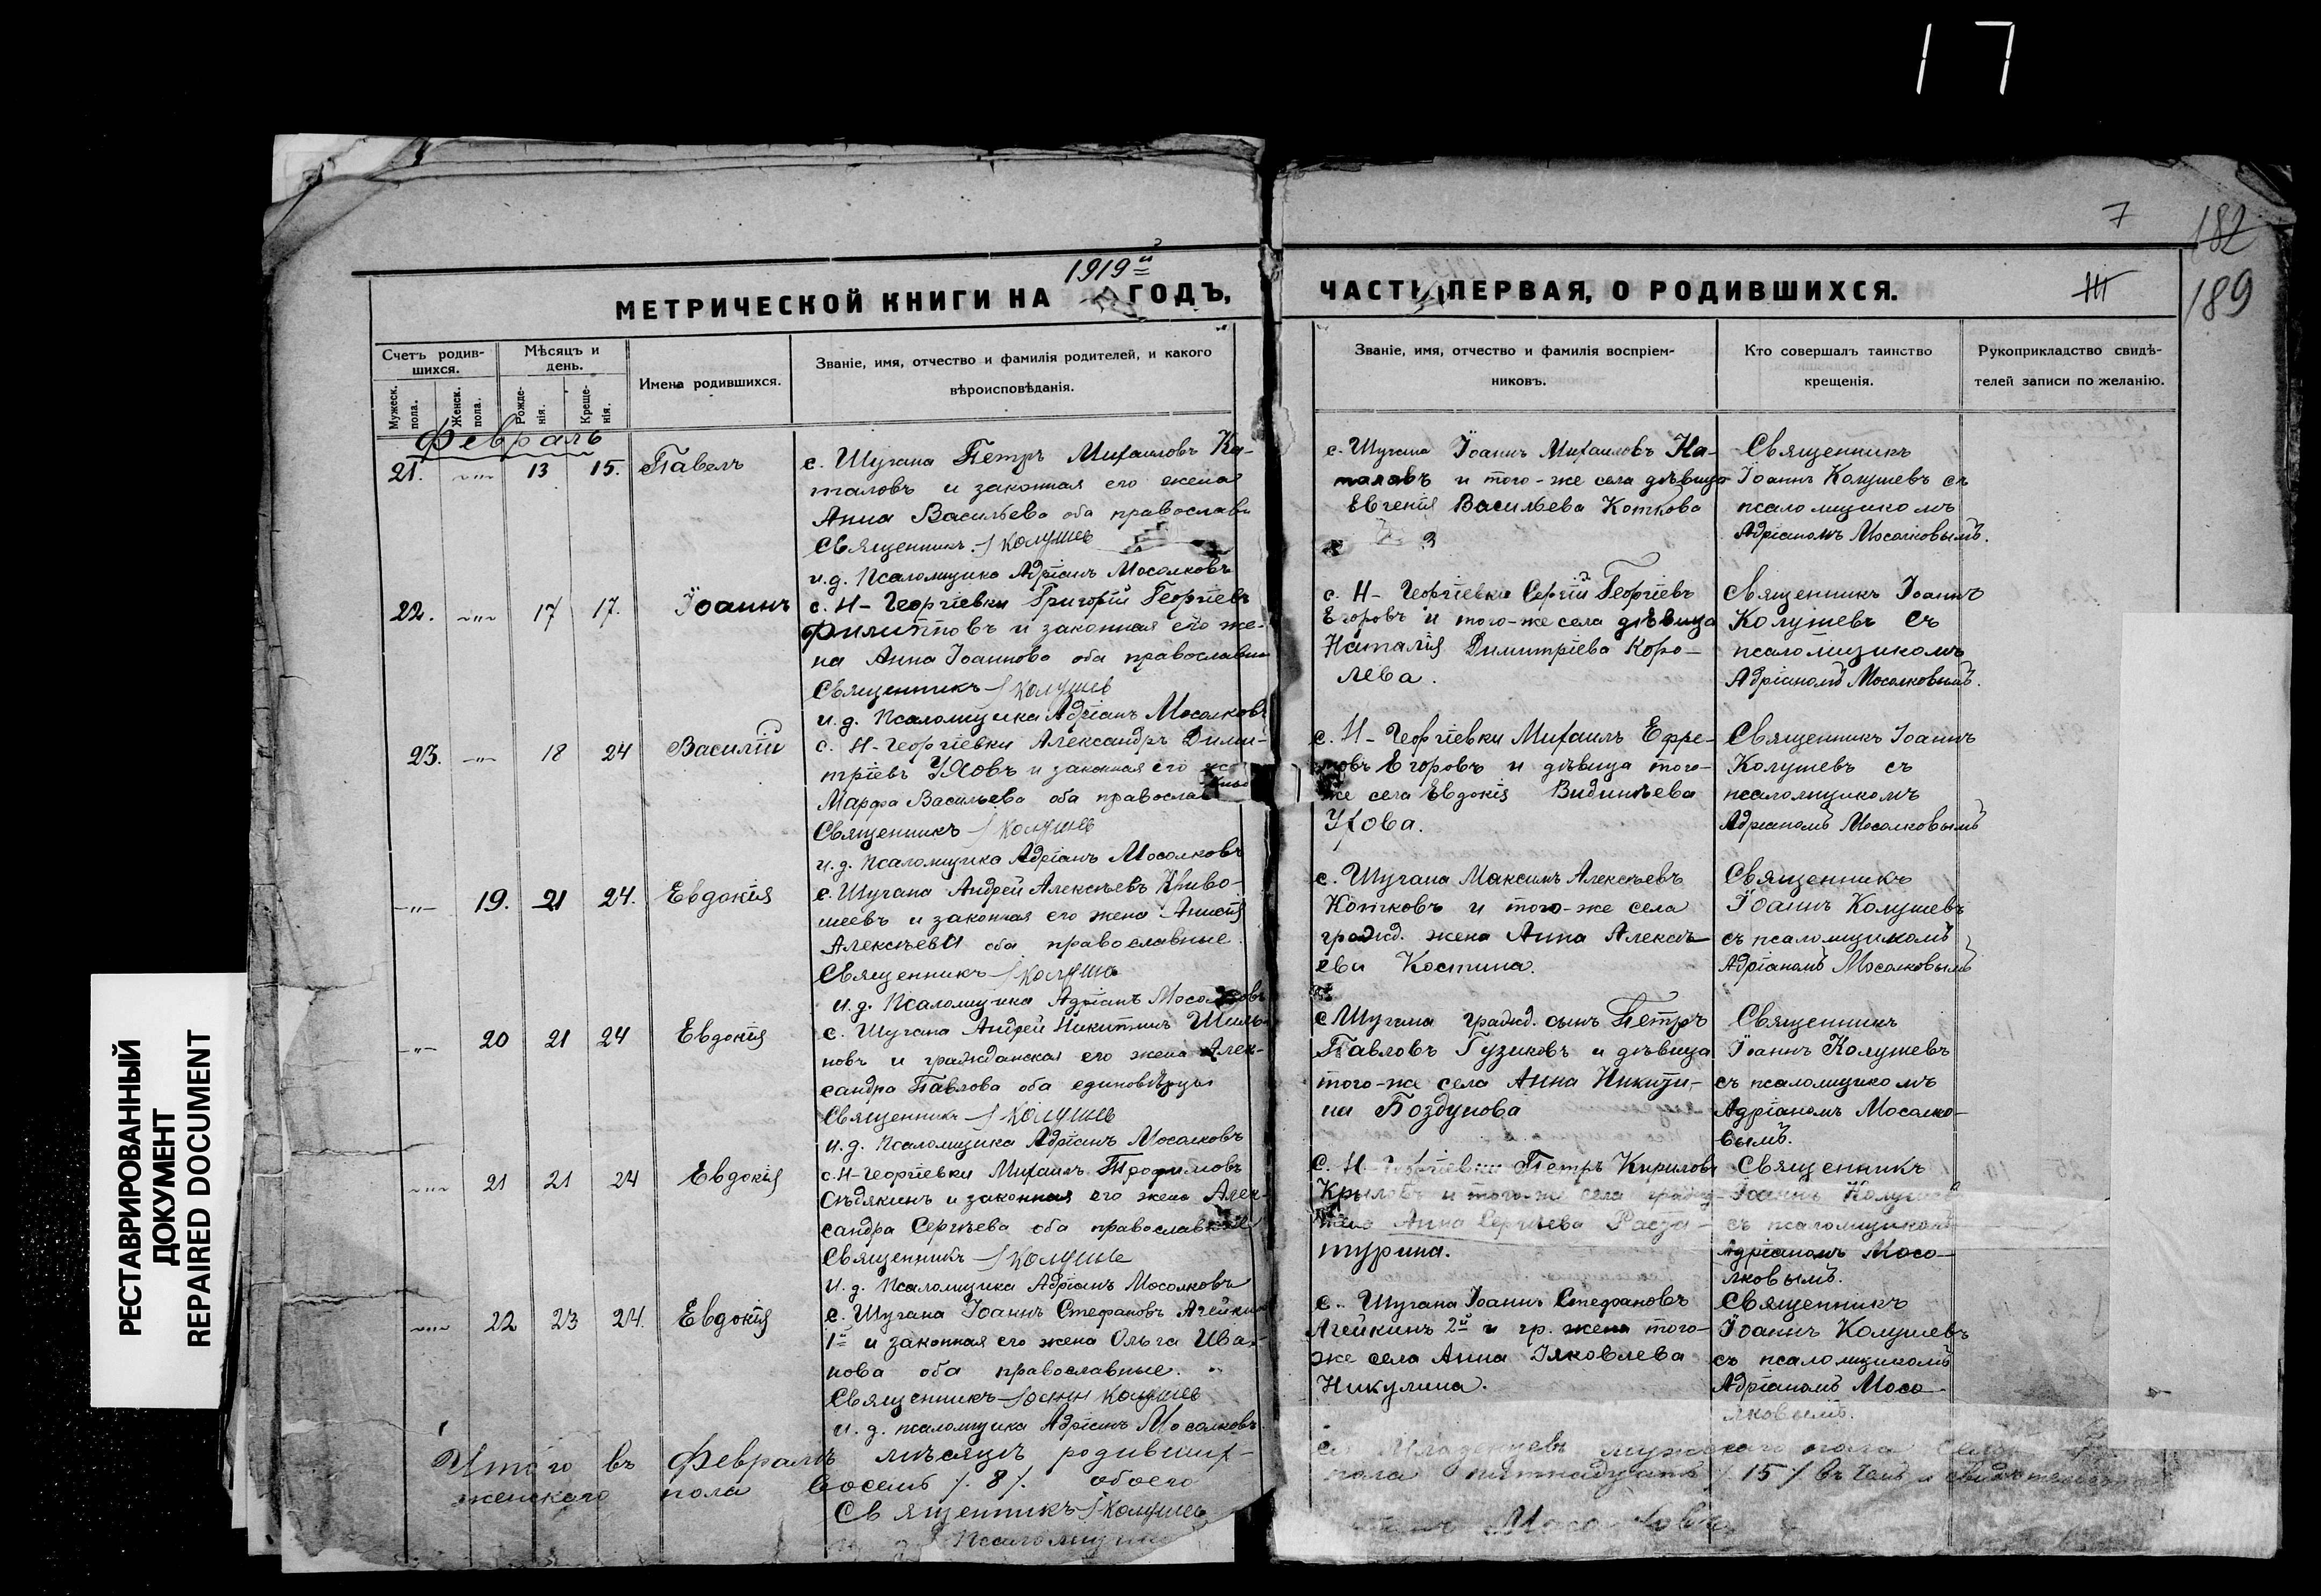 17
7
182
189
1919й
МЕТРИЧЕСКОЙ КНИГИ НА ГОДЪ,
ЧАСТЬ ПЕРВАЯ, О РОДИВШИХСЯ.
Счетъ родив-
шихся.
Мужеск. пола.
Женск. пола.
Мѣсяцъ и день.
Рожде-
нія.
Креще-
нія.
Имена родившихся.
Званіе, имя, отчество и фамилія родителей, и какого
вѣроисповѣданія.
Званіе, имя, отчество и фамилія воспріем-
никовъ.
Кто совершалъ таинство
крещенія.
Рукоприкладство свидѣ-
телей записи по желанію.
Февраль
21. -"- 13 15. Павелъ
с. Шугана Петръ Михаиловъ Ка-
таловъ и законная его жена
Анна Васильева оба православн
Священникъ Колушев
и.д. Псаломщика Адріанъ Мосолковъ
с. Шугана Іоаннъ Михаиловъ Ка-
таловъ и того-же села дѣвица
Евгенія Васильева Коткова
Священникъ
Іоаннъ Колушевъ съ
псаломщикомъ
Адріаномъ Мосолковымъ.
22. -"- 17 17. Іоаннъ
с. Н-Георгіевки Григорій Георгіевъ
Филипповъ и законная его же-
на Анна Іоаннова оба православны
Священникъ Колушев
и.д. Псаломщика Адріанъ Мосолковъ
с. Н-Георгіевки Сергій Георгіевъ
Егоровъ и того-же села дѣвица
Наталія Димитріева Коро-
лева.
Священникъ Іоаннъ
Колушевъ съ
псаломщикомъ
Адріаномъ Мосолковымъ.
23. -"- 18 24 Василій
с. Н-Георгіевки Александръ Дими-
тріевъ Уховъ и законная его
Марфа Васильева оба православ
Священникъ Колушев
и.д. Псаломщика Адріанъ Мосолковъ
с. Н-Георгіевки Михаилъ Ефре-
мовъ Егоровъ и дѣвица того-
же села Евдокія
Ухова.
Священникъ Іоаннъ
Колушевъ съ
псаломщикомъ
Адріаномъ Мосолковымъ
-"- 19. 21 24. Евдокія
с. Шугана Андрей Алексѣевъ Криво-
шеевъ и законная его жена
Алексѣева оба православные.
Священникъ Колушев
и.д. Псаломщика Адріанъ Мосолковъ
с. Шугана Максимъ Алексѣевъ
Котковъ и того-же села
гражд. жена Анна Алексѣ-
ева Костина.
Священникъ
Іоаннъ Колушевъ
съ псаломщикомъ
Адріаномъ Мосолковымъ
-"- 20 21 24 Евдокія
с. Шугана Андрей Никитинъ
новъ и гражданская его жена Алек-
сандра Павлова оба единовѣрцы
Священникъ Колушев
и.д. Псаломщика Адріанъ Мосолковъ
с Шугана гражд. сынъ Петръ
Павловъ Гузиковъ и дѣвица
того-же села Анна Никити-
на
Священникъ
Іоаннъ Колушевъ
съ псаломщикомъ
Адріаномъ Мосолко-
вымъ.
-"- 21 21 24 Евдокія
с. Н-Георгіевки Михаилъ Трофимовъ
Сѣдякинъ и законная его жена Алек-
сандра Сергѣева оба православные
Священникъ Колушев
и.д. Псаломщика Адріанъ Мосолковъ
с. Н-Георгіевки Петръ Кириловъ
Крыловъ и того-же села гражд.
жена Анна Сергѣева
Священникъ
Іоаннъ Колушевъ
съ псаломщикомъ
Адріаномъ Мосо-
лковымъ.
-"- 22 23 24. Евдокія
с. Шугана Іоаннъ Стефановъ Агейкинъ
1й и законная его жена Ольга Ива-
нова оба православные.
Священникъ Іоанн Колушев
и.д. псаломщика Адріанъ Мосолковъ.
с. Шугана Іоаннъ Стефановъ
Агейкинъ 2й и гр. жена того-
же села Анна Іяковлева
Никулина.
Священникъ
Іоаннъ Колушевъ
съ псаломщикомъ
Адріаномъ Мосо-
лковымъ.
Итого въ Февралѣ мѣсяцѣ родивших-
ся Младенцевъ мужескаго пола
женскаго пола восемь /.8/. обоего
пола пятнадцать /.15/. въ чемъ и
Священникъ Колушев
Псаломщика
РЕСТАВРИРОВАННЫЙ
ДОКУМЕНТ
REPAIRED DOCUMENT